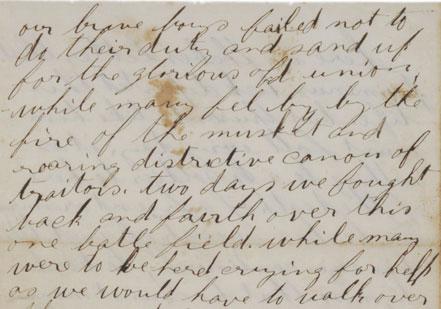 our brave boys failed not to
do their duty and sand up
for the glorious old union,
while many fel by by the
fire of the musket and
roaring distrctive canon of
traitors. two days we fought
back and fairth over this
one batle field. while many
were to be herd crying for help
as we would have to walk over